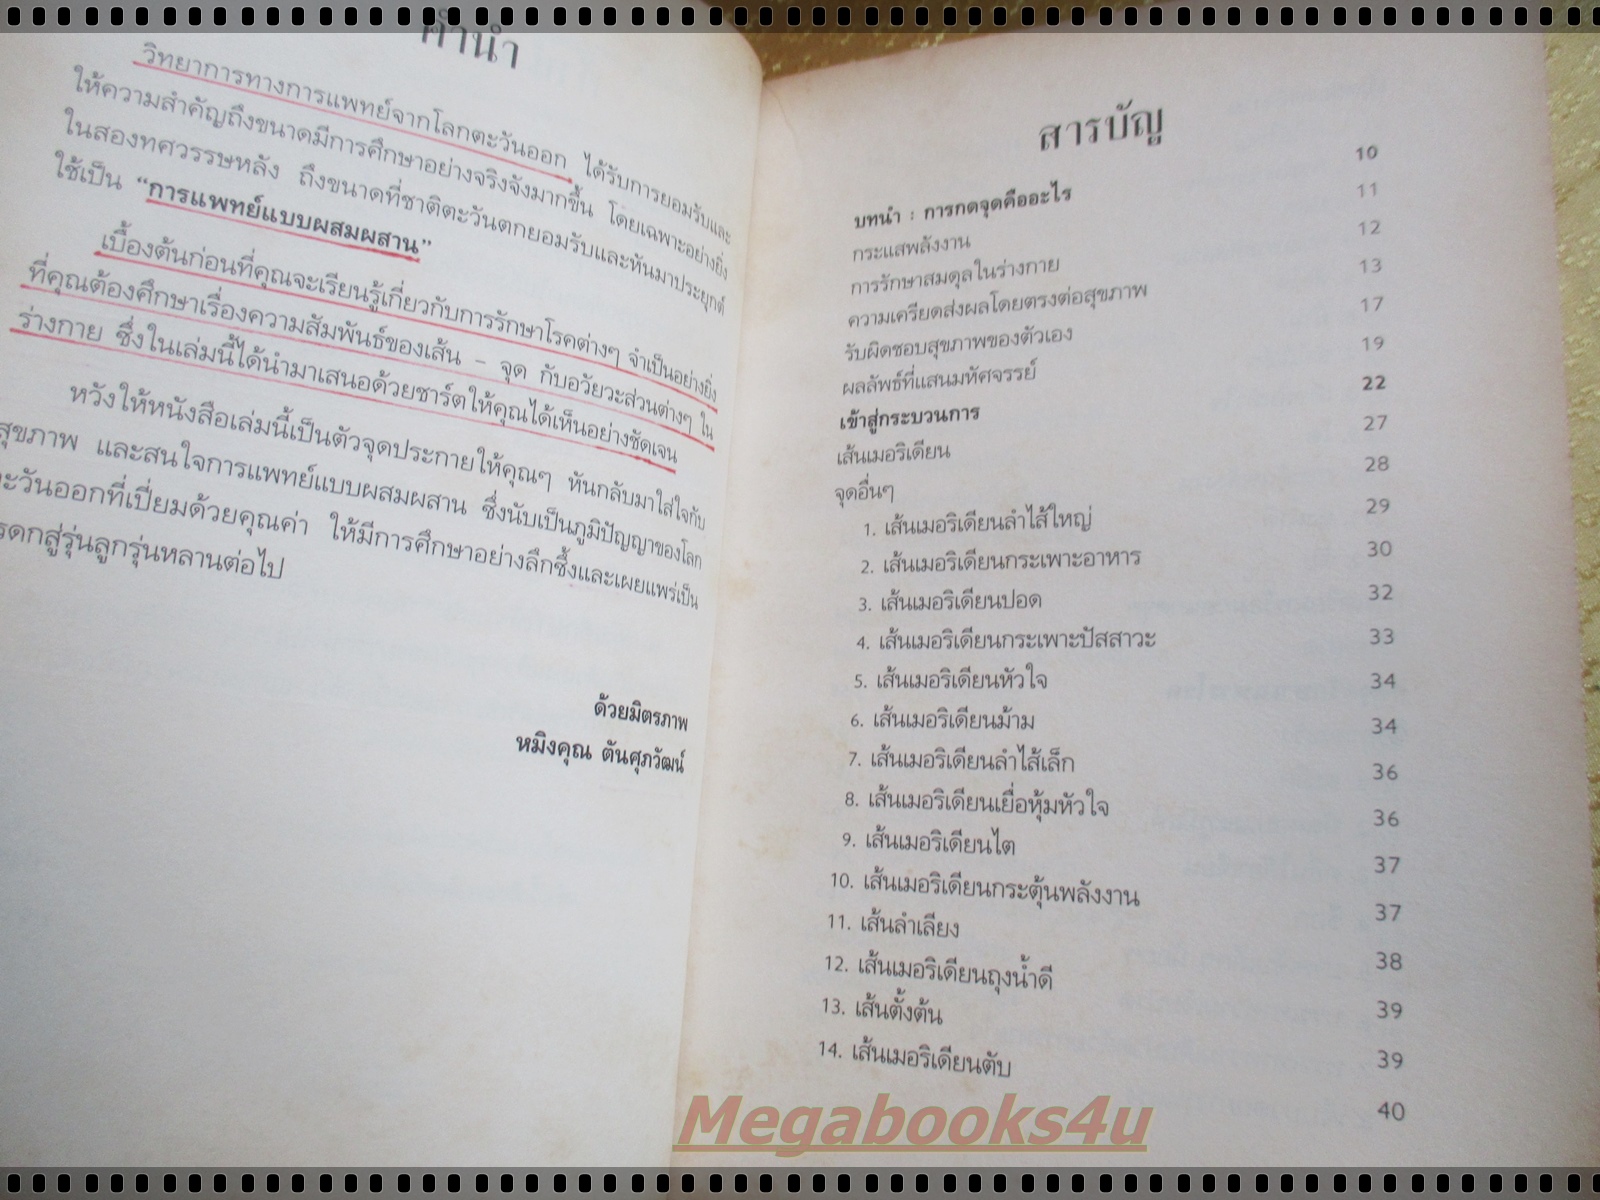 คำนำ
วิทยาการทางการแพทย์จากโลกตะวันออก ได้รับการยอมรับและ
ให้ความสำคัญถึงขนาดมีการศึกษาอย่างจริงจังมากขึ้น โดยเฉพาะอย่างยิ่ง
ในสองทศวรรษหลัง ถึงขนาดที่ชาติตะวันตกยอมรับและหันมาประยุกต์
ใช้เป็น “การแพทย์แบบผสมผสาน”
เบื้องต้นก่อนที่คุณจะเรียนรู้เกี่ยวกับการรักษาโรคต่างๆ จำเป็นอย่างยิ่ง
ที่คุณต้องศึกษาเรื่องความสัมพันธ์ของเส้น – จุด กับอวัยวะส่วนต่างๆ ใน
ร่างกาย ซึ่งในเล่มนี้ได้นำมาเสนอด้วยชาร์ตให้คุณได้เห็นอย่างชัดเจน
หวังให้หนังสือเล่มนี้เป็นตัวจุดประกายให้คุณๆ หันกลับมาใส่ใจกับ
สุขภาพ และสนใจการแพทย์แบบผสมผสาน ซึ่งนับเป็นภูมิปัญญาของโลก
ะวันออกที่เปี่ยมด้วยคุณค่า ให้มีการศึกษาอย่างลึกซึ้งและเผยแพร่เป็น
รดกสู่รุ่นลูกรุ่นหลานต่อไป
ด้วยมิตรภาพ
หมิงคุณ ตันศุภวัฒน์
สารบัญ
บทนำ : การกดจุดคืออะไร 10
กระแสพลังงาน 11
การรักษาสมดุลในร่างกาย 12
ความเครียดส่งผลโดยตรงต่อสุขภาพ 13
รับผิดชอบสุขภาพของตัวเอง 17
ผลลัพธ์ที่แสนมหัศจรรย์ 19
เข้าสู่กระบวนการ 22
เส้นเมอริเดียน 27
จุดอื่นๆ 28
1. เส้นเมอริเดียนลำไส้ใหญ่ 29
2. เส้นเมอริเดียนกระเพาะอาหาร 30
3. เส้นเมอริเดียนปอด 32
4. เส้นเมอริเดียนกระเพาะปัสสาวะ 33
5. เส้นเมอริเดียนหัวใจ 34
6. เส้นเมอริเดียนม้าม 34
7. เส้นเมอริเดียนลำไส้เล็ก 36
8. เส้นเมอริเดียนเยื่อหุ้มหัวใจ 36
9. เส้นเมอริเดียนไต 37
10. เส้นเมอริเดียนกระตุ้นพลังงาน 37
11. เส้นลำเลียง 38
12. เส้นเมอริเดียนถุงน้ำดี 39
13. เส้นตั้งต้น 39
14. เส้นเมอริเดียนตับ 40
Megabooks4u